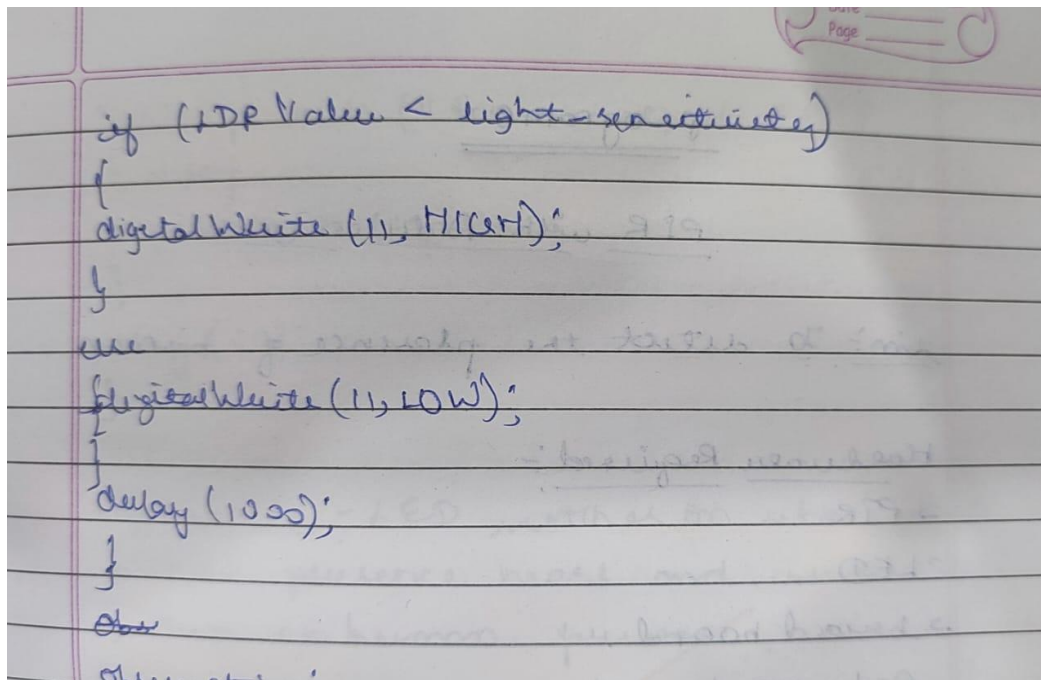 Page
if (LDRValue < light-sensitivity)
{
digitalWrite (11, HIGH);
}
else
{digitalWrite (11, LOW);
}
delay (1000);
}